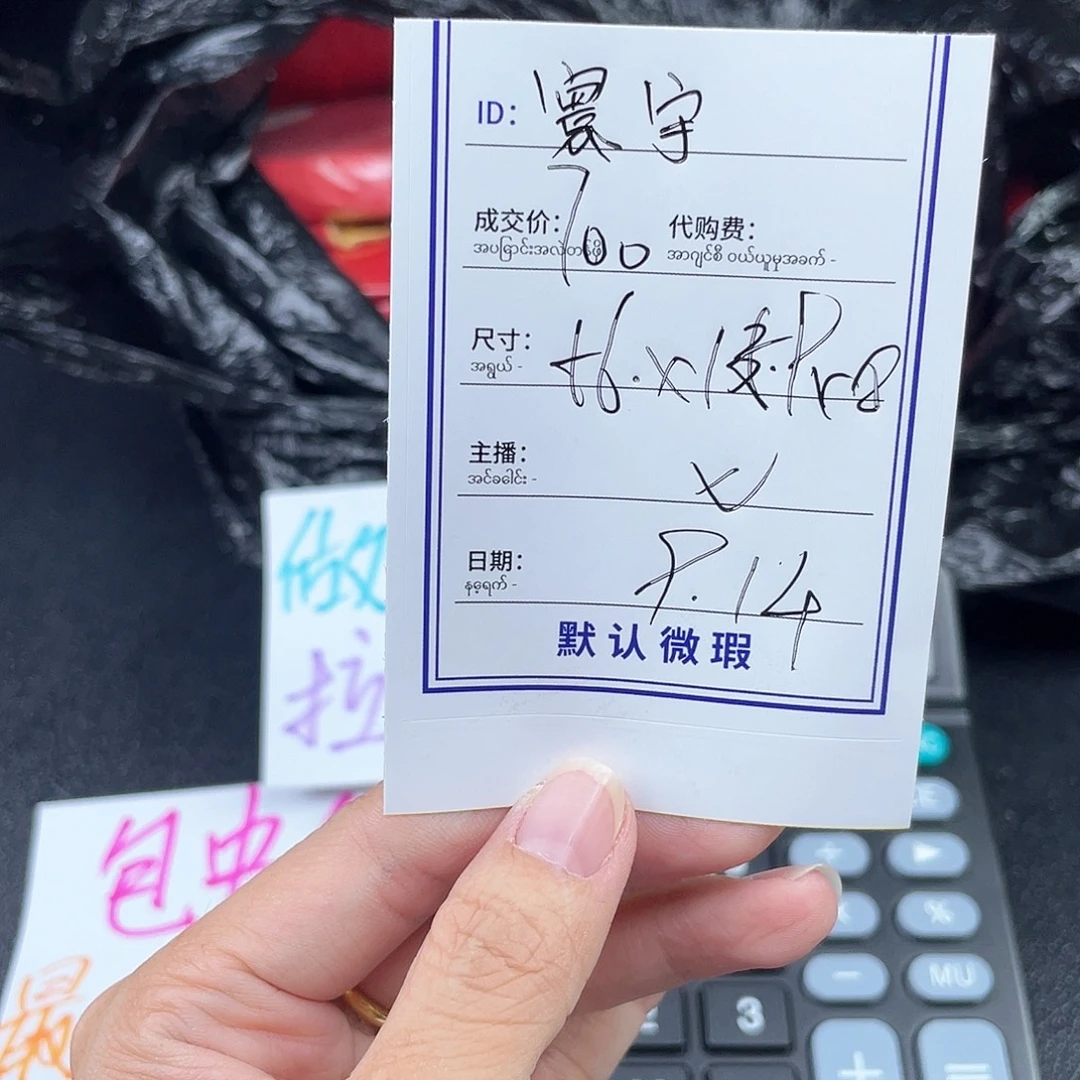 ID: 寰宇
成交价: 700 代购费:
အပြောင်းအလဲတန်ဖိုး အာဂျင်စီ ဝယ်ယူမှုအခက် -
尺寸:
အရွယ် -
主播:
အင်ခေါင်း -
日期: 8.14
နေ့ရက် -
默认微瑕
做
拉
包中
最
3
%
MU